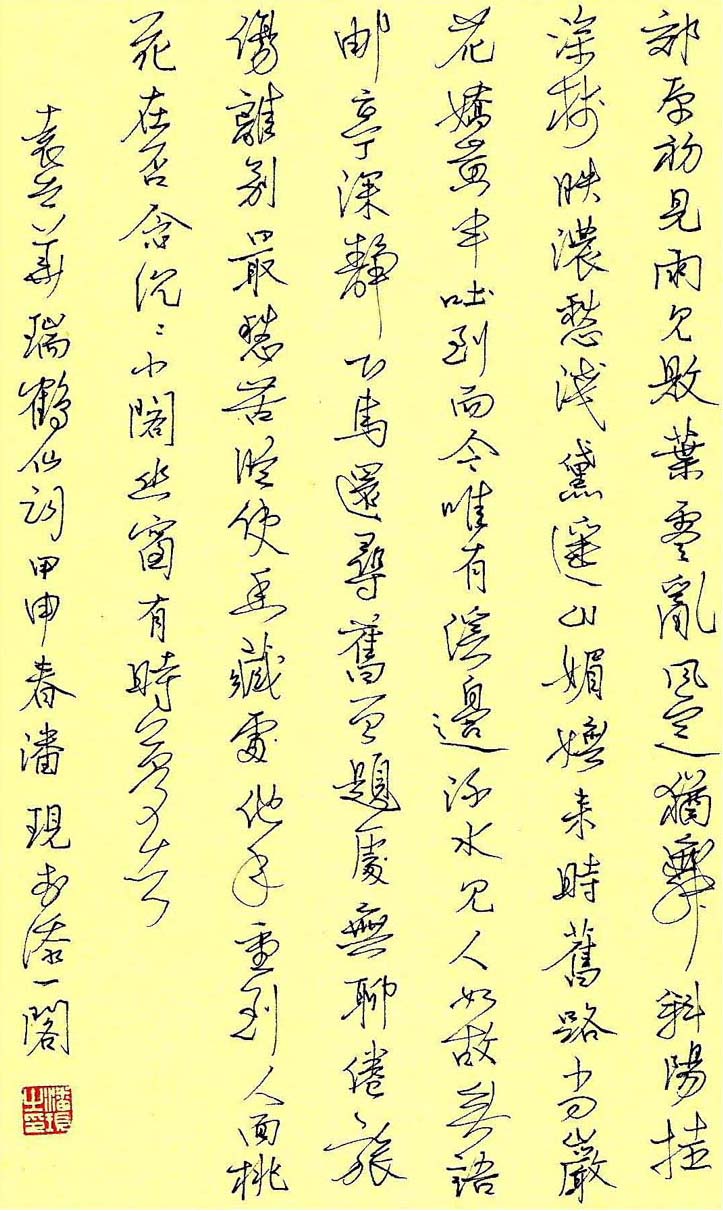 郊原初見雨見敗葉零亂風定猶舞斜陽挂
深樹映濃愁淺黛遥山媚嫵来時舊路尚巖
花嬌黄半吐到而今唯有溪邊流水見人如故無語
郵亭深靜下馬還尋舊曾題處無聊倦旅
傷離别最愁苦縱使藏處他年重到人面桃
花在否念沉〻小閣幽窗有時夢
袁去華瑞鶴仙詞甲申春潘現书添一閣
潘現之印